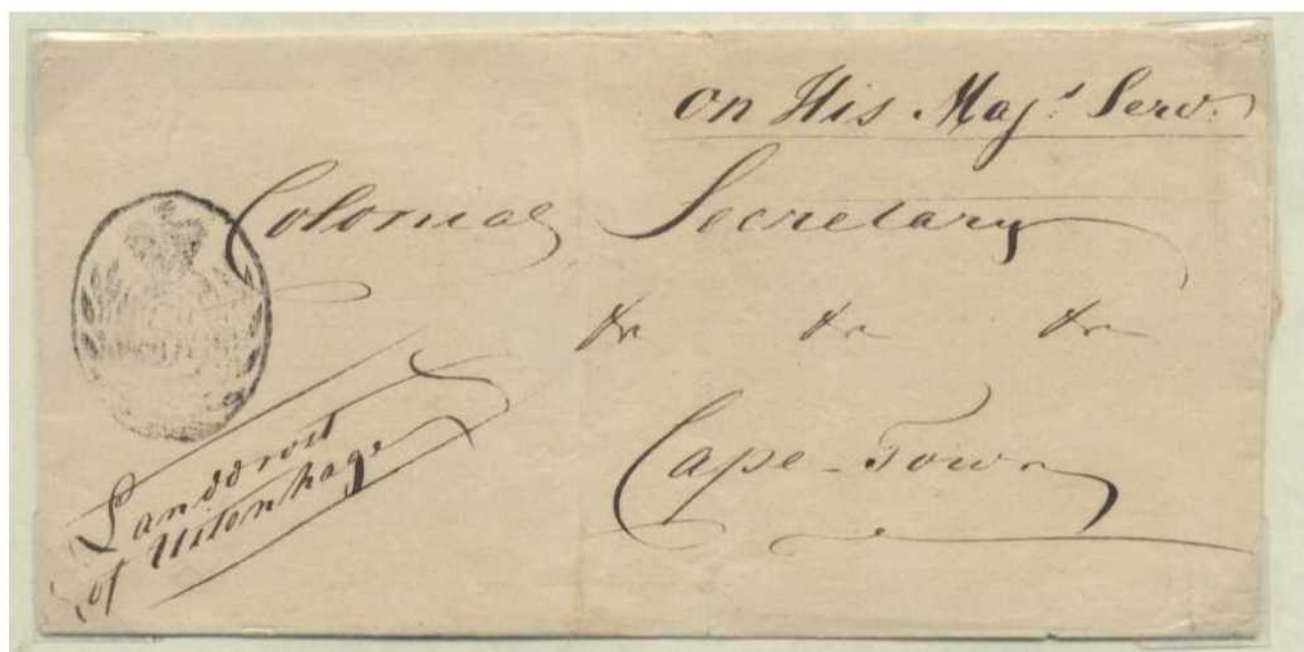 on His Maj.s Serv.
Colonial Secretary
&c &c &c
Cape-Town
Landdrost
of Uitenhage